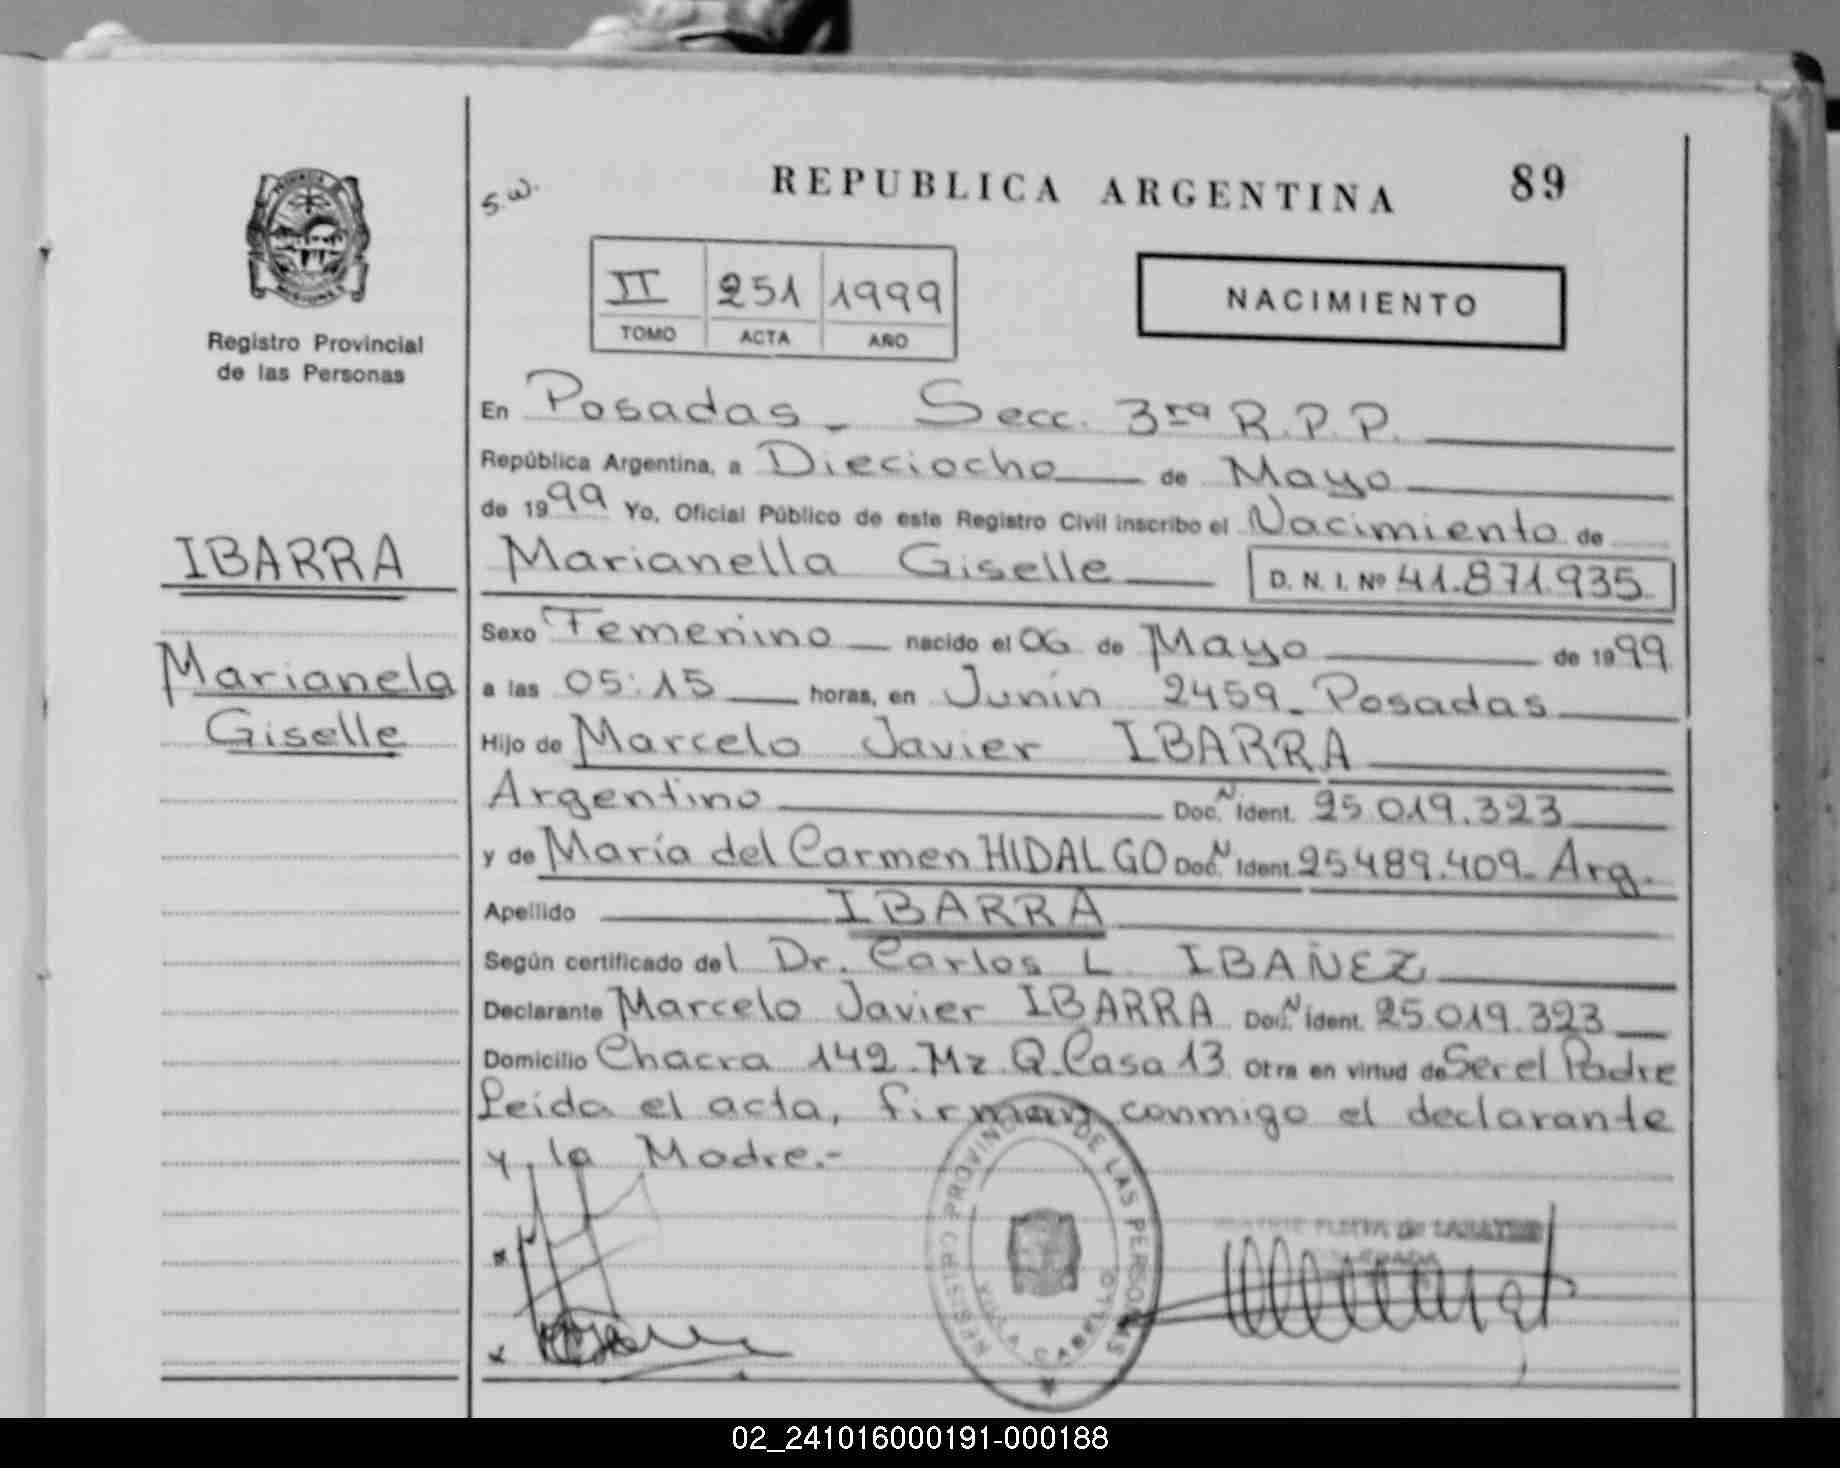 REPUBLICA ARGENTINA
89
S.W.
II 251 1999
TOMO ACTA AÑO
NACIMIENTO
PROVINCIA DE
MISIONES
Registro Provincial
de las Personas
IBARRA
Marianela
Giselle
En Posadas - Secc. 3ra R.P.P.
República Argentina, a Dieciocho de Mayo
de 1999 Yo, Oficial Público de este Registro Civil inscribo el Nacimiento de
Marianella Giselle D. N. I. Nº 41.871.935
Sexo Femenino nacido el 06 de Mayo de 1999
a las 05:15 horas, en Junín 2459 - Posadas
Hijo de Marcelo Javier IBARRA
Argentino Doc. N Ident. 25.019.323
y de María del Carmen HIDALGO Doc. N Ident. 25.489.409 - Arg.
Apellido IBARRA
Según certificado del Dr. Carlos L. IBAÑEZ
Declarante Marcelo Javier IBARRA Doc. N Ident. 25.019.323
Domicilio Chacra 142 - Mz. Q - Casa 13 Otra en virtud de Ser el Padre
Leída el acta, firman conmigo el declarante
y la Madre.-
REGISTRO PROVINCIAL DE LAS PERSONAS
VILLA CABELLO
02_241016000191-000188